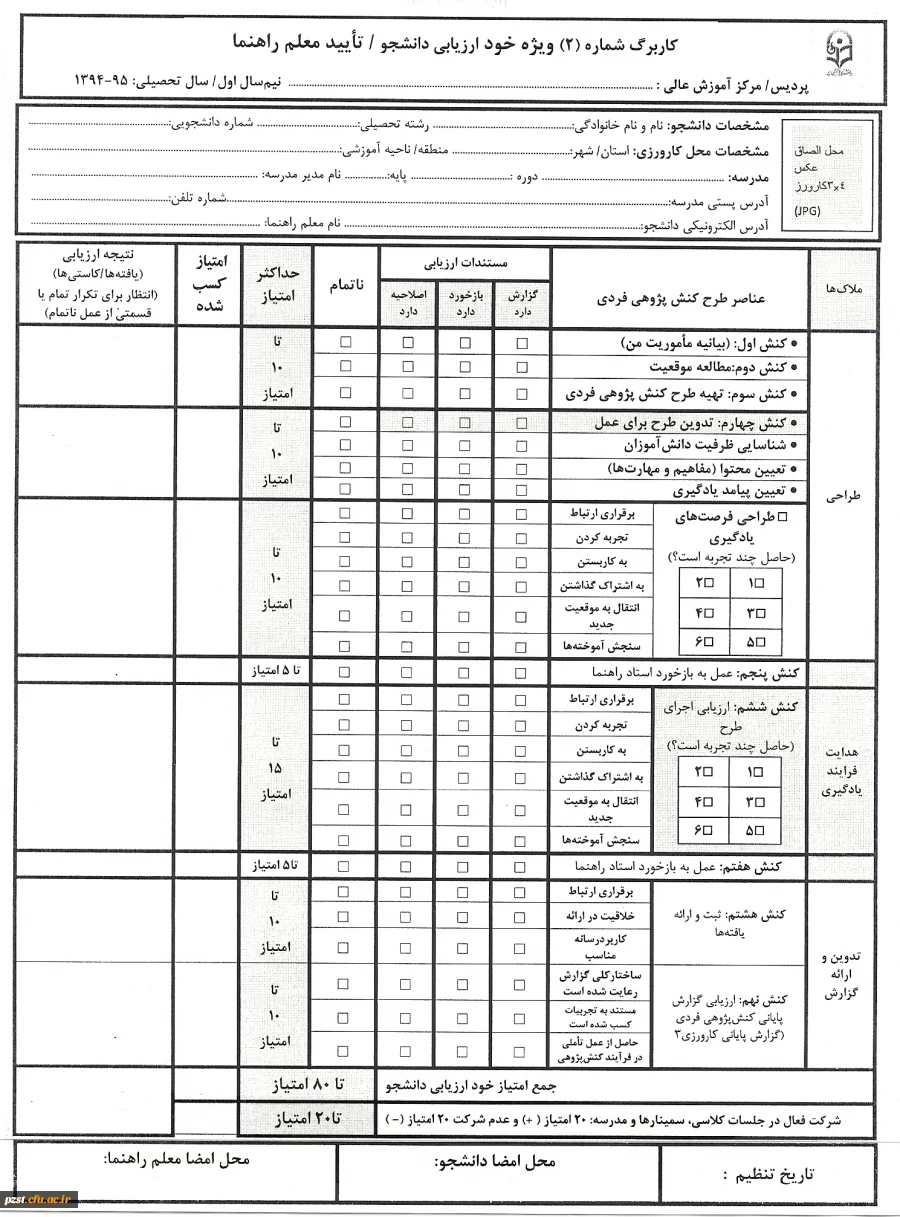 کاربرگ شماره (۲) ویژه خود ارزیابی دانشجو / تأیید معلم راهنما
پردیس/ مرکز آموزش عالی : نیم‌سال اول/ سال تحصیلی: ۹۵-۱۳۹۴
محل الصاق
عکس
۴×۳کارورز
(JPG)
مشخصات دانشجو: نام و نام خانوادگی: رشته تحصیلی: شماره دانشجویی:
مشخصات محل کارورزی: استان/ شهر: منطقه/ ناحیه آموزشی:
مدرسه: دوره : پایه: نام مدیر مدرسه:
آدرس پستی مدرسه: شماره تلفن:
آدرس الکترونیکی دانشجو: نام معلم راهنما:
ملاک‌ها
عناصر طرح کنش پژوهی فردی
مستندات ارزیابی
گزارش دارد
بازخورد دارد
اصلاحیه دارد
ناتمام
حداکثر امتیاز
امتیاز کسب شده
نتیجه ارزیابی
(یافته‌ها/کاستی‌ها)
(انتظار برای تکرار تمام یا
قسمتی از عمل ناتمام)
طراحی
• کنش اول: (بیانیه مأموریت من)
• کنش دوم:مطالعه موقعیت
• کنش سوم: تهیه طرح کنش پژوهی فردی
تا
۱۰
امتیاز
• کنش چهارم: تدوین طرح برای عمل
• شناسایی ظرفیت دانش‌آموزان
• تعیین محتوا (مفاهیم و مهارت‌ها)
• تعیین پیامد یادگیری
تا
۱۰
امتیاز
□ طراحی فرصت‌های
یادگیری
(حاصل چند تجربه است؟)
□۱ □۲
□۳ □۴
□۵ □۶
برقراری ارتباط
تجربه کردن
به کاربستن
به اشتراک گذاشتن
انتقال به موقعیت
جدید
سنجش آموخته‌ها
تا
۱۰
امتیاز
کنش پنجم: عمل به بازخورد استاد راهنما
تا ۵ امتیاز
هدایت
فرایند
یادگیری
کنش ششم: ارزیابی اجرای
طرح
(حاصل چند تجربه است؟)
□۱ □۲
□۳ □۴
□۵ □۶
برقراری ارتباط
تجربه کردن
به کاربستن
به اشتراک گذاشتن
انتقال به موقعیت
جدید
سنجش آموخته‌ها
تا
۱۵
امتیاز
کنش هفتم: عمل به بازخورد استاد راهنما
تا۵ امتیاز
تدوین و
ارائه
گزارش
کنش هشتم: ثبت و ارائه
یافته‌ها
برقراری ارتباط
خلاقیت در ارائه
کاربردرسانه
مناسب
تا
۱۰
امتیاز
کنش نهم: ارزیابی گزارش
پایانی کنش‌پژوهی فردی
(گزارش پایانی کارورزی۳
ساختارکلی گزارش
رعایت شده است
مستند به تجربیات
کسب شده است
حاصل از عمل تأملی
در فرآیند کنش‌پژوهی
تا
۱۰
امتیاز
جمع امتیاز خود ارزیابی دانشجو
تا ۸۰ امتیاز
شرکت فعال در جلسات کلاسی، سمینارها و مدرسه: ۲۰ امتیاز (+) و عدم شرکت ۲۰ امتیاز (-)
تا۲۰ امتیاز
تاریخ تنظیم :
محل امضا دانشجو:
محل امضا معلم راهنما:
pzst.cfu.ac.ir